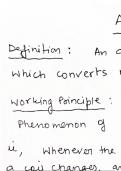 Definition : An
which converts
Working Principle :
Phenomenon of
ii, Whenever the
a coil changes, an